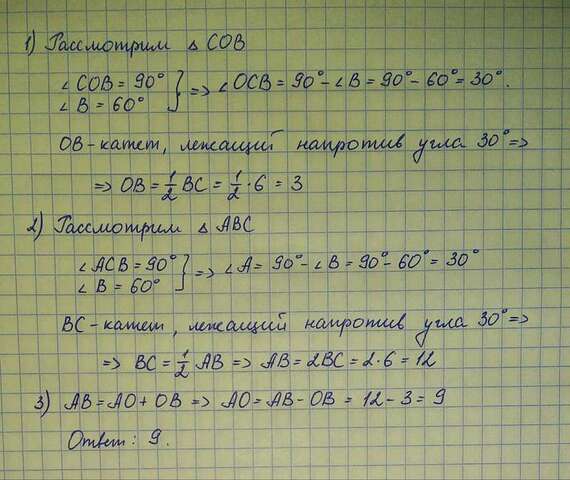 1) Рассмотрим △ COB
∠ COB = 90°
∠ B = 60° } => ∠ OCB = 90° - ∠ B = 90° - 60° = 30°.
OB - катет, лежащий напротив угла 30° =>
=> OB = 1/2 BC = 1/2 · 6 = 3
2) Рассмотрим △ ABC
∠ ACB = 90°
∠ B = 60° } => ∠ A = 90° - ∠ B = 90° - 60° = 30°
BC - катет, лежащий напротив угла 30° =>
=> BC = 1/2 AB => AB = 2BC = 2 · 6 = 12
3) AB = AO + OB => AO = AB - OB = 12 - 3 = 9
Ответ: 9.